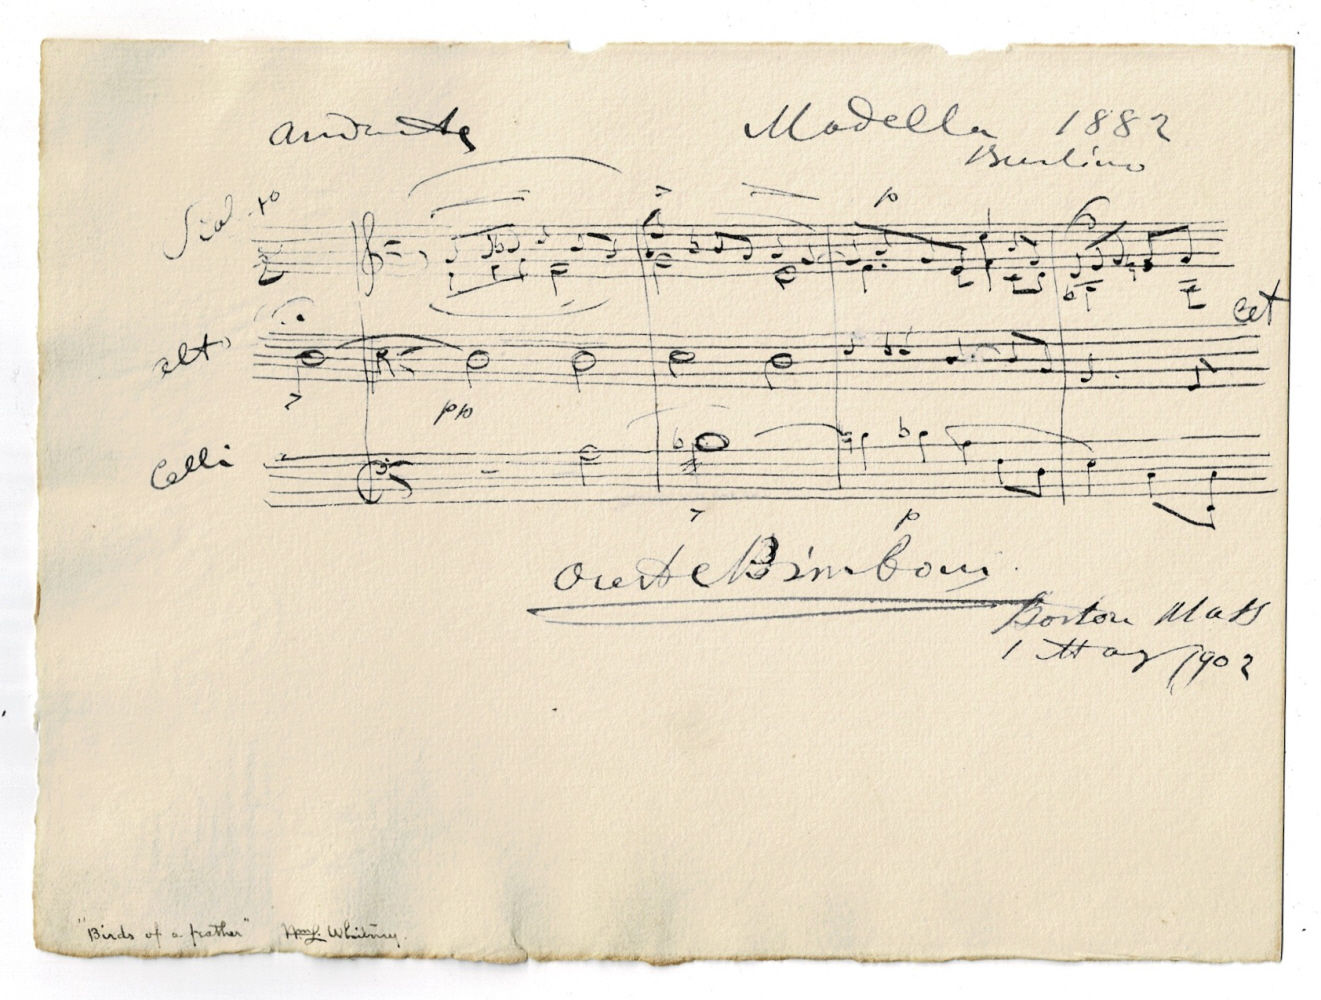 Andante
Modella 1882
Berlino
alto
cet
pp
p
Celli
p
Oreste Bimboni
Boston Mass
1 May 1902
"Birds of a feather" Whitney.